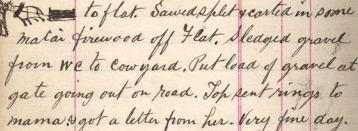 to flat. Sawed split & carted in some
matai firewood off Flat. Sledged gravel
from W C to cowyard. Put load of gravel at
gate going out on road. Top sent rings to
mama & got a letter from her. Very fine day.